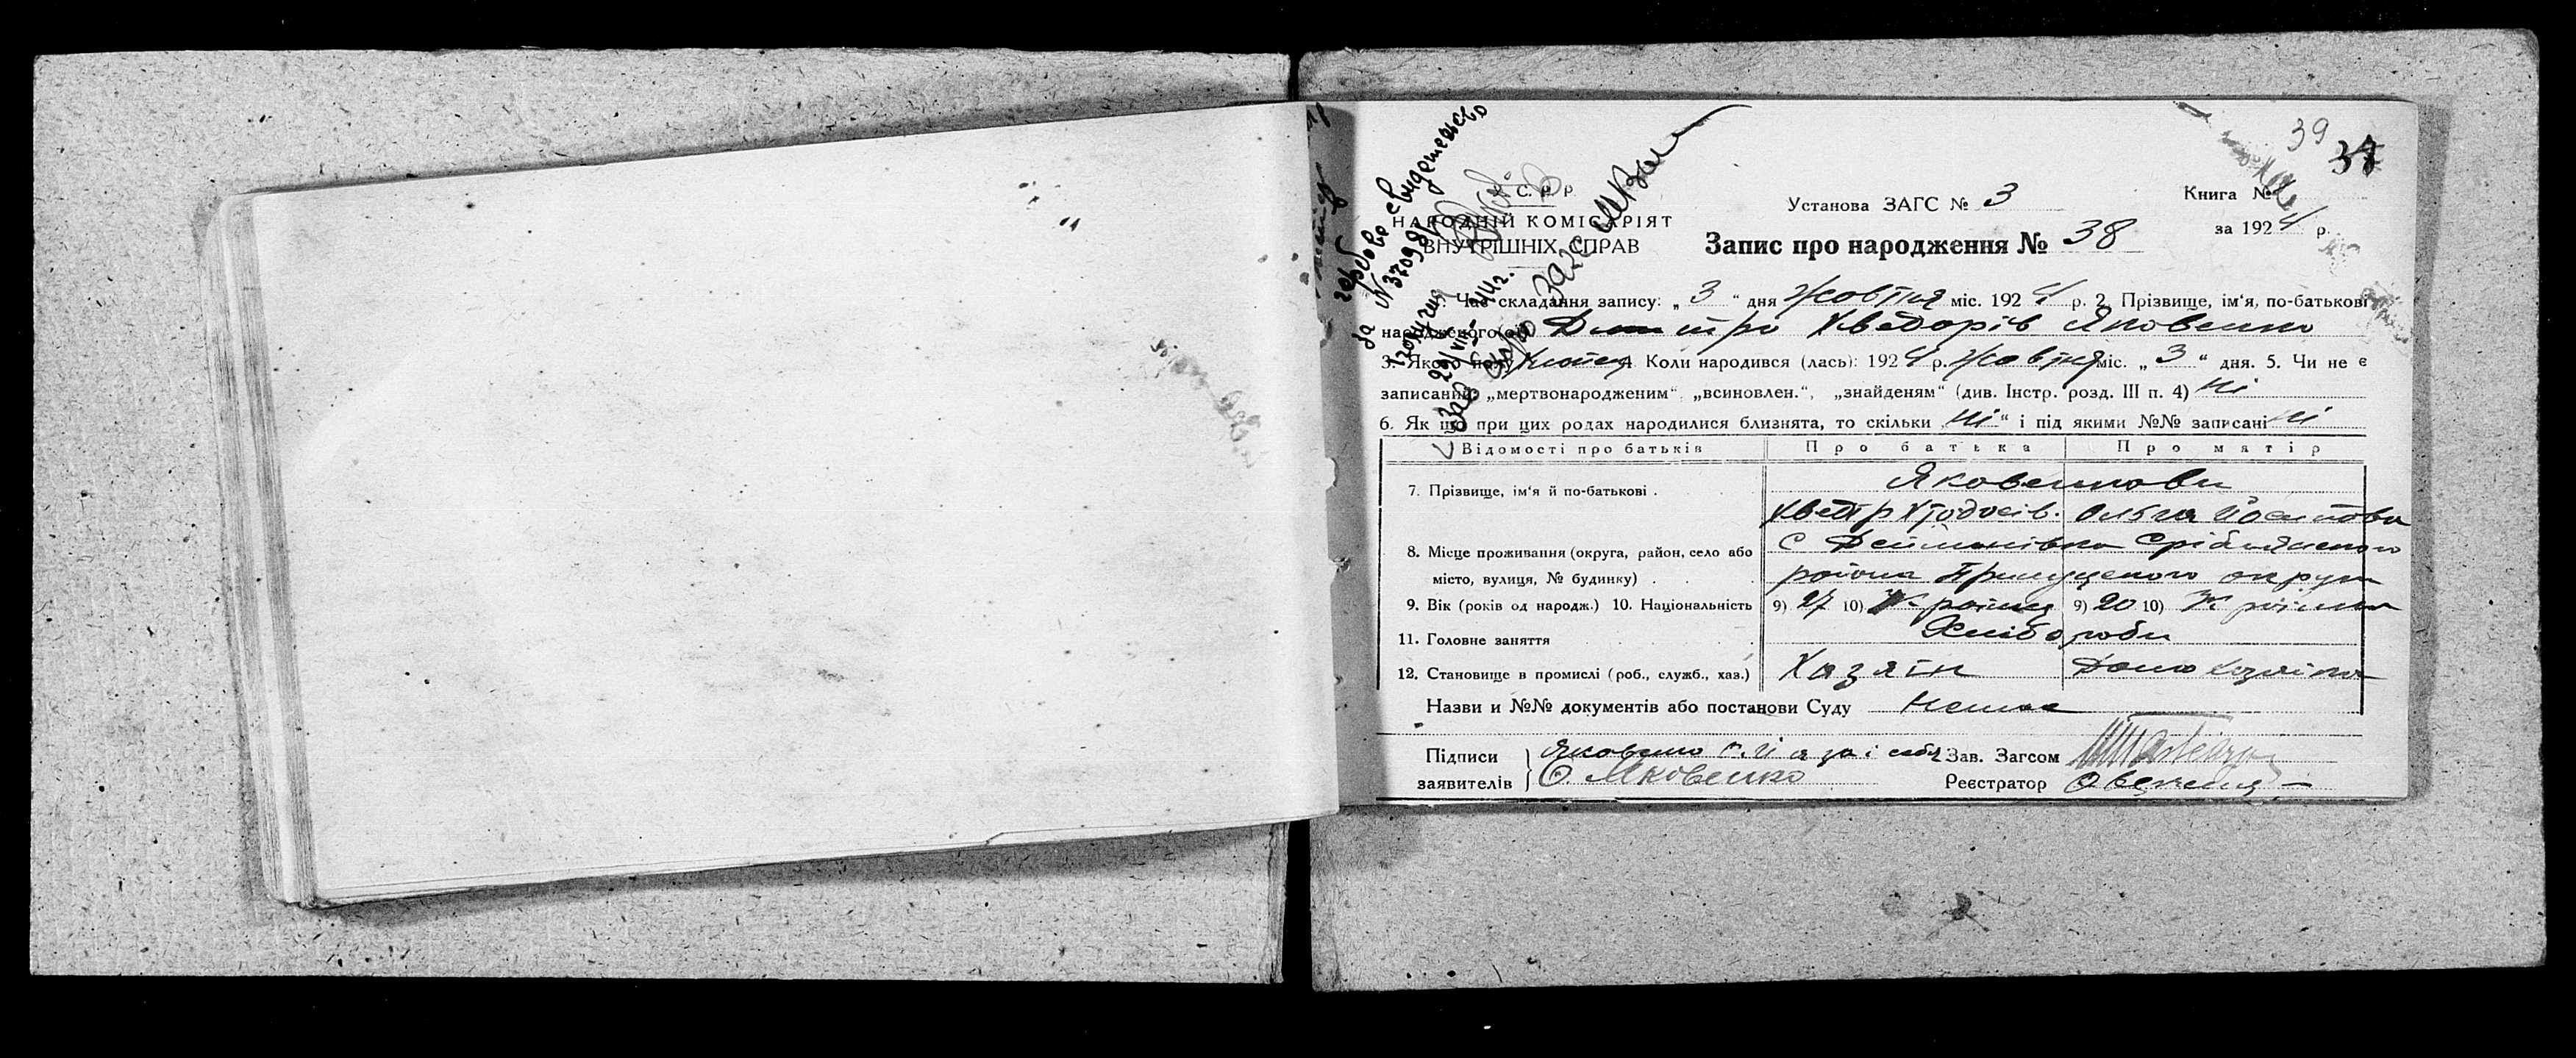 39
38
У. С. Р. Р.
НАРОДНІЙ КОМІСАРІЯТ
ВНУТРІШНІХ СПРАВ
Установа ЗАГС № 3
Книга №
за 1924 р.
Запис про народження № 38
гербовое свидетельство
за № 37098
получил
29/VIII-44г.
Зав. ЗАГС
1. Час складання запису: „ 3 “ дня Жовтня міс. 1924 р. 2. Прізвище, ім‘я, по-батькові
народженого(ої) Дмитро Хведорів Яковенко
3. Якого полу Хлопец 4. Коли народився (лась): 1924 р. Жовтня міс. „ 3 “ дня. 5. Чи не є
записаний: „мертвонародженим“ „всиновлен.“, „знайденям“ (див. Інстр. розд. III п. 4) Ні
6. Як що при цих родах народилися близнята, то скільки „Ні“ і під якими №№ записані Ні
Відомості про батьків Про батька Про матір
7. Прізвище, ім‘я й по-батькові . Яковенкови
Хведір Хтодосів. Ольга Йосипова
8. Місце проживання (округа, район, село або С Дейманівка Срібнянського
місто, вулиця, № будинку) . района Прилуцького округи
9. Вік (років од народж.) 10. Національність 9) 27 10) Україниц 9) 20 10) Українка
11. Головне заняття Хлібороби
12. Становище в промислі (роб., служб., хаз.) Хазяїн Домохазяйка
Назви и №№ документів або постанови Суду Немає
Підписи Яковенко а за і себя Зав. Загсом
заявителів О. Яковенко Реєстратор